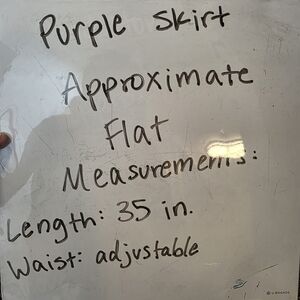 Purple Skirt
Approximate
Flat
Measurements:
Length: 35 in.
Waist: adjustable